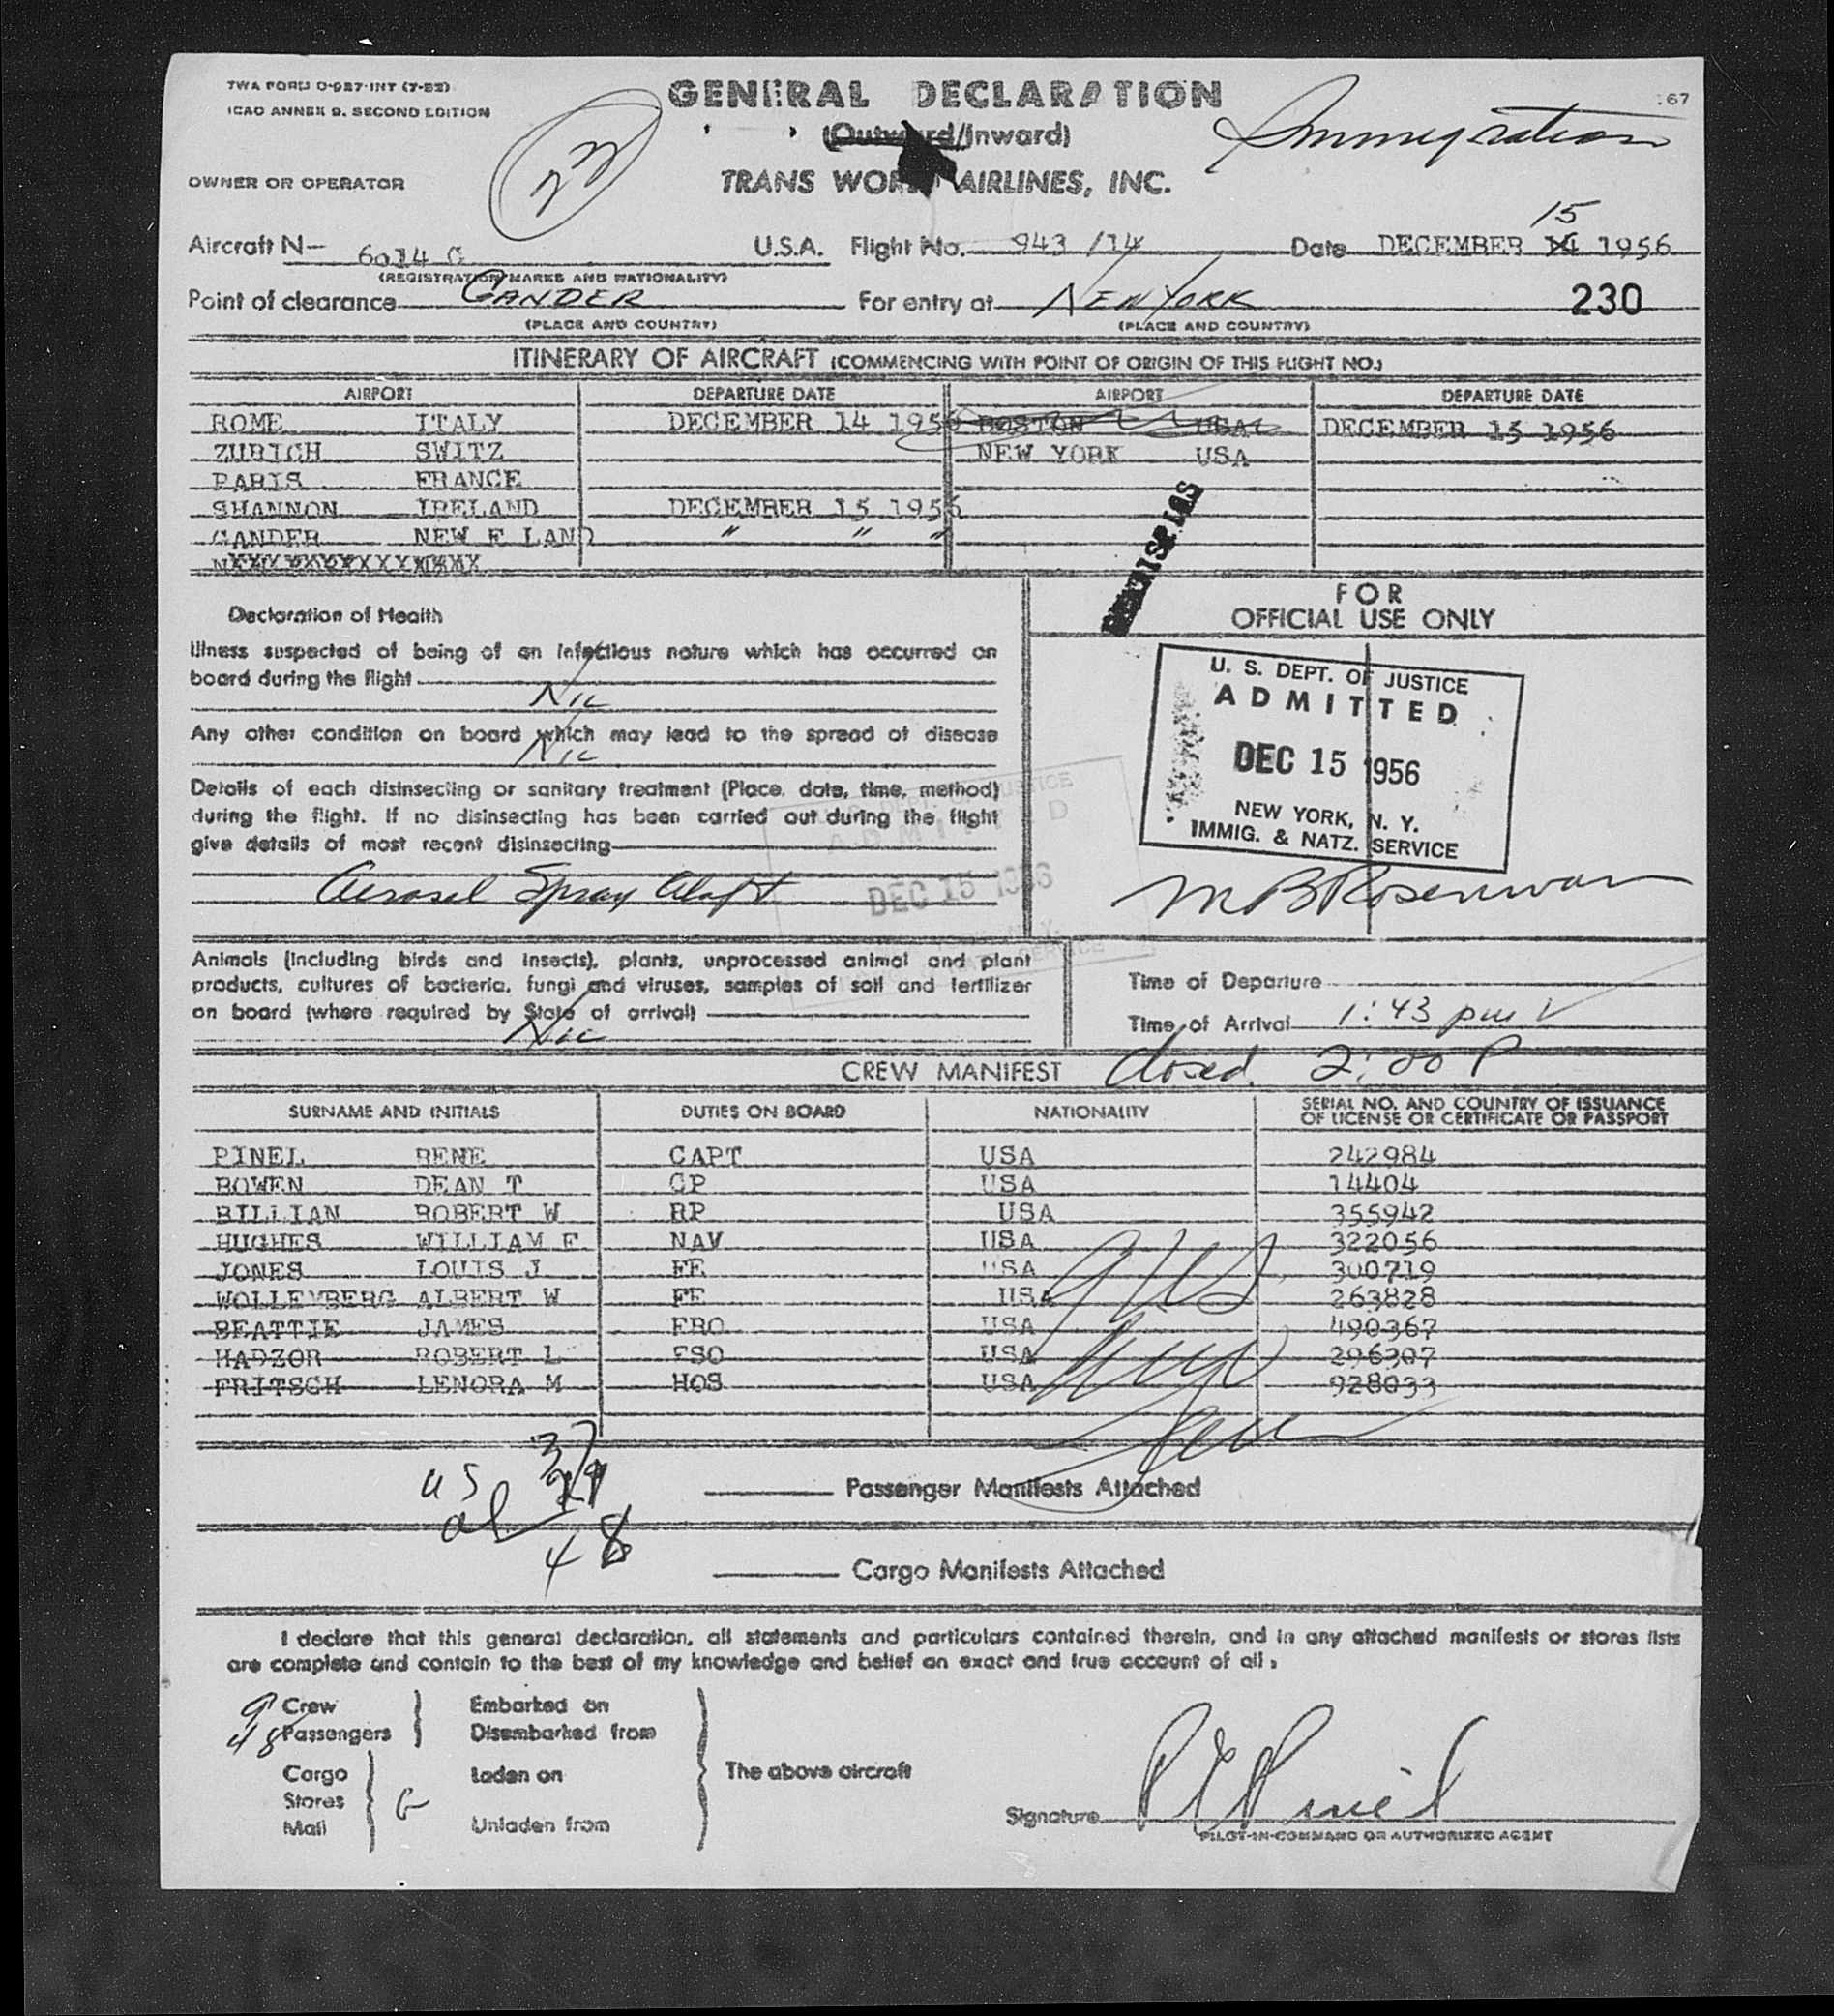 TWA FORM O-927-INT (7-52)
ICAO ANNEX 9, SECOND EDITION
GENERAL DECLARATION
(Outward/Inward)
Immigration
67
OWNER OR OPERATOR
TRANS WORLD AIRLINES, INC.
15
Aircraft N- 6014 C U.S.A. Flight No. 943 /14 Date DECEMBER 14 1956
(REGISTRATION MARKS AND NATIONALITY)
Point of clearance GANDER For entry at NEW YORK 230
(PLACE AND COUNTRY) (PLACE AND COUNTRY)
ITINERARY OF AIRCRAFT (COMMENCING WITH POINT OF ORIGIN OF THIS FLIGHT NO.)
AIRPORT DEPARTURE DATE AIRPORT DEPARTURE DATE
ROME ITALY DECEMBER 14 1956 BOSTON USA DECEMBER 15 1956
ZURICH SWITZ NEW YORK USA
PARIS FRANCE
SHANNON IRELAND DECEMBER 15 1956
GANDER NEW F LAND " " "
FOR
OFFICIAL USE ONLY
Declaration of Health
Illness suspected of being of an infectious nature which has occurred on
board during the flight
Nil
Any other condition on board which may lead to the spread of disease
Nil
Details of each disinsecting or sanitary treatment (Place, date, time, method)
during the flight. If no disinsecting has been carried out during the flight
give details of most recent disinsecting
Aerosol Spray Aloft
U. S. DEPT. OF JUSTICE
ADMITTED
DEC 15 1956
NEW YORK, N. Y.
IMMIG. & NATZ. SERVICE
ADMITTED
DEC 15 1956
Animals (including birds and insects), plants, unprocessed animal and plant
products, cultures of bacteria, fungi and viruses, samples of soil and fertilizer
on board (where required by State of arrival)
Nil
Time of Departure
Time of Arrival 1:43 pm
CREW MANIFEST Closed 2:00 P
SURNAME AND INITIALS DUTIES ON BOARD NATIONALITY SERIAL NO. AND COUNTRY OF ISSUANCE
OF LICENSE OR CERTIFICATE OR PASSPORT
PINEL RENE CAPT USA 242984
BOWEN DEAN T CP USA 14404
BILLIAN ROBERT W RP USA 355942
HUGHES WILLIAM F NAV USA 322056
JONES LOUIS J FE USA 300719
WOLLENBERG ALBERT W FE USA 263828
BEATTIE JAMES FRO USA 490367
HADZOR ROBERT L FSO USA 296307
FRITSCH LENORA M HOS USA 928033
US 37
al
48
Passenger Manifests Attached
Cargo Manifests Attached
I declare that this general declaration, all statements and particulars contained therein, and in any attached manifests or stores lists
are complete and contain to the best of my knowledge and belief an exact and true account of all:
9 Crew Embarked on
48 Passengers Disembarked from
Cargo Laden on The above aircraft
Stores
Mail Unladen from
Signature
PILOT-IN-COMMAND OR AUTHORIZED AGENT